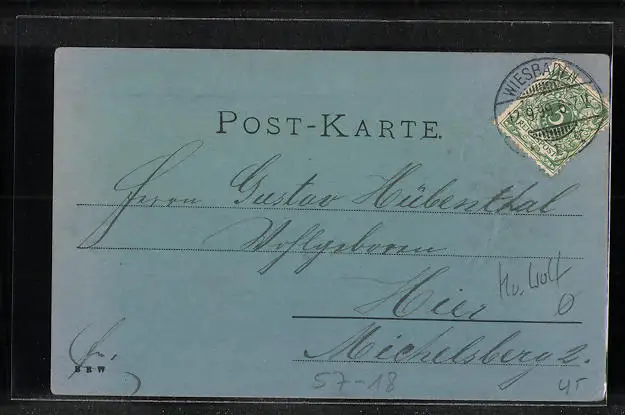 WIESBADEN
POST-KARTE.
Herrn Gustav Hübenthal
Wohlgeboren
Hier
Michelsberg 2.
fr.
BRW
57-18
45